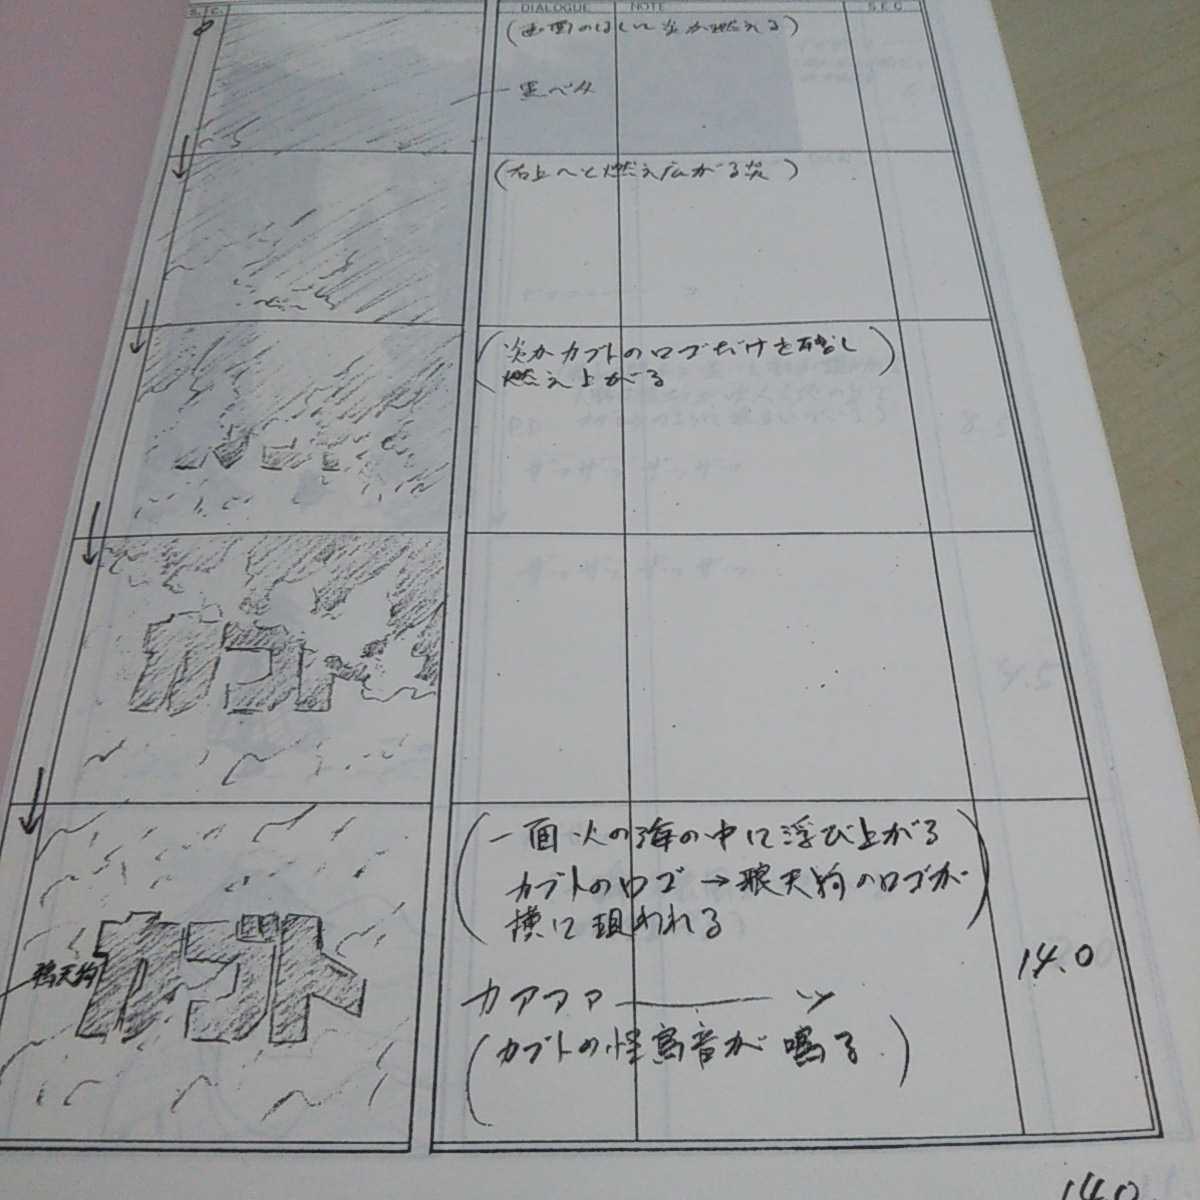 S. / C.
DIALOGUE
NOTE
SEC
8
(画面のはしに炎が燃える)
黒ベタ
(右上へと燃え広がる炎)
(炎がカブトのロゴだけを残し
燃え上がる)
カブト
(一面火の海の中に浮び上がる
カブトのロゴ→鴉天狗のロゴが
横に現われる)
カブト
鴉天狗
カアアア――ッ
(カブトの怪鳥音が鳴る)
14.0
14.0